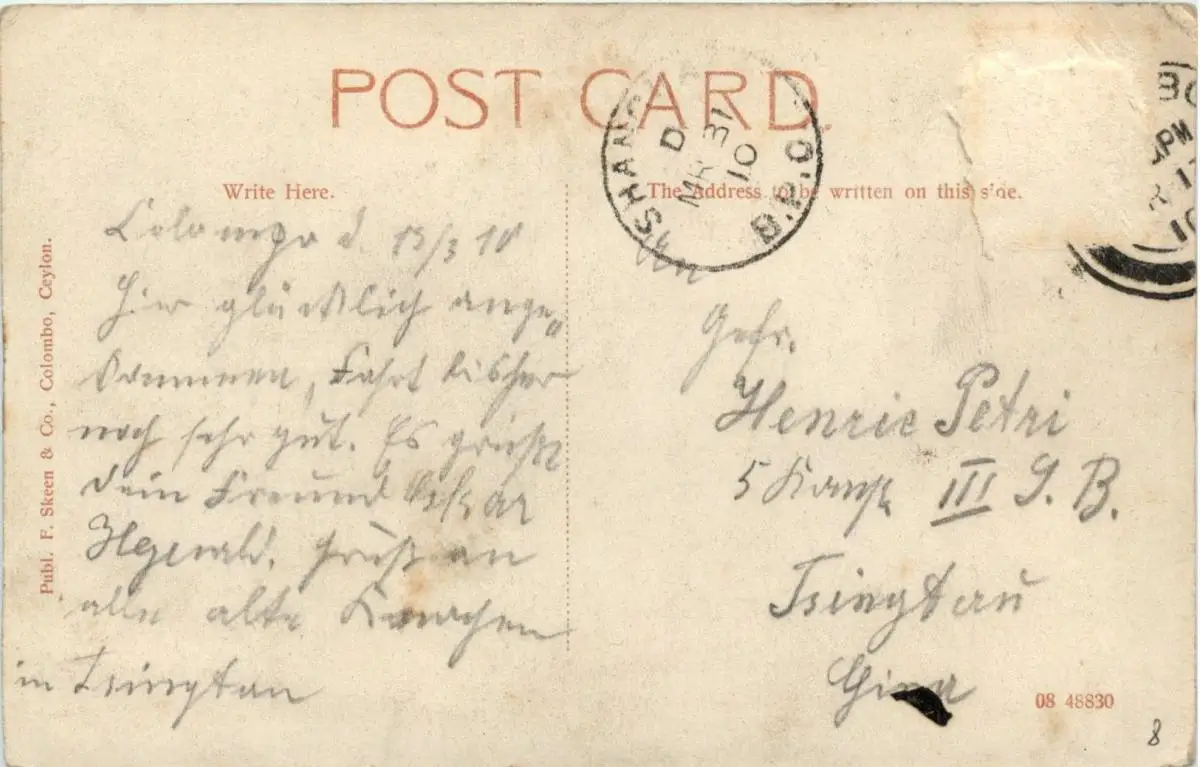 POST CARD.
Write Here.
The Address to be written on this side.
Publ. F. Skeen & Co., Colombo, Ceylon.
SHANG B.P.O.
D
MR 31
10
PM
10
Colombo d. 13/3 10
Hier glücklich ange„
kommen, Fahrt bisher
noch sehr gut. Es grüßt
dein Freund Oskar
Gruß an
alle alte Knochen
in Tsingtau
An
Gefr.
Henric Petri
5 Komp. III S. B.
Tsingtau
China
08 48830
8